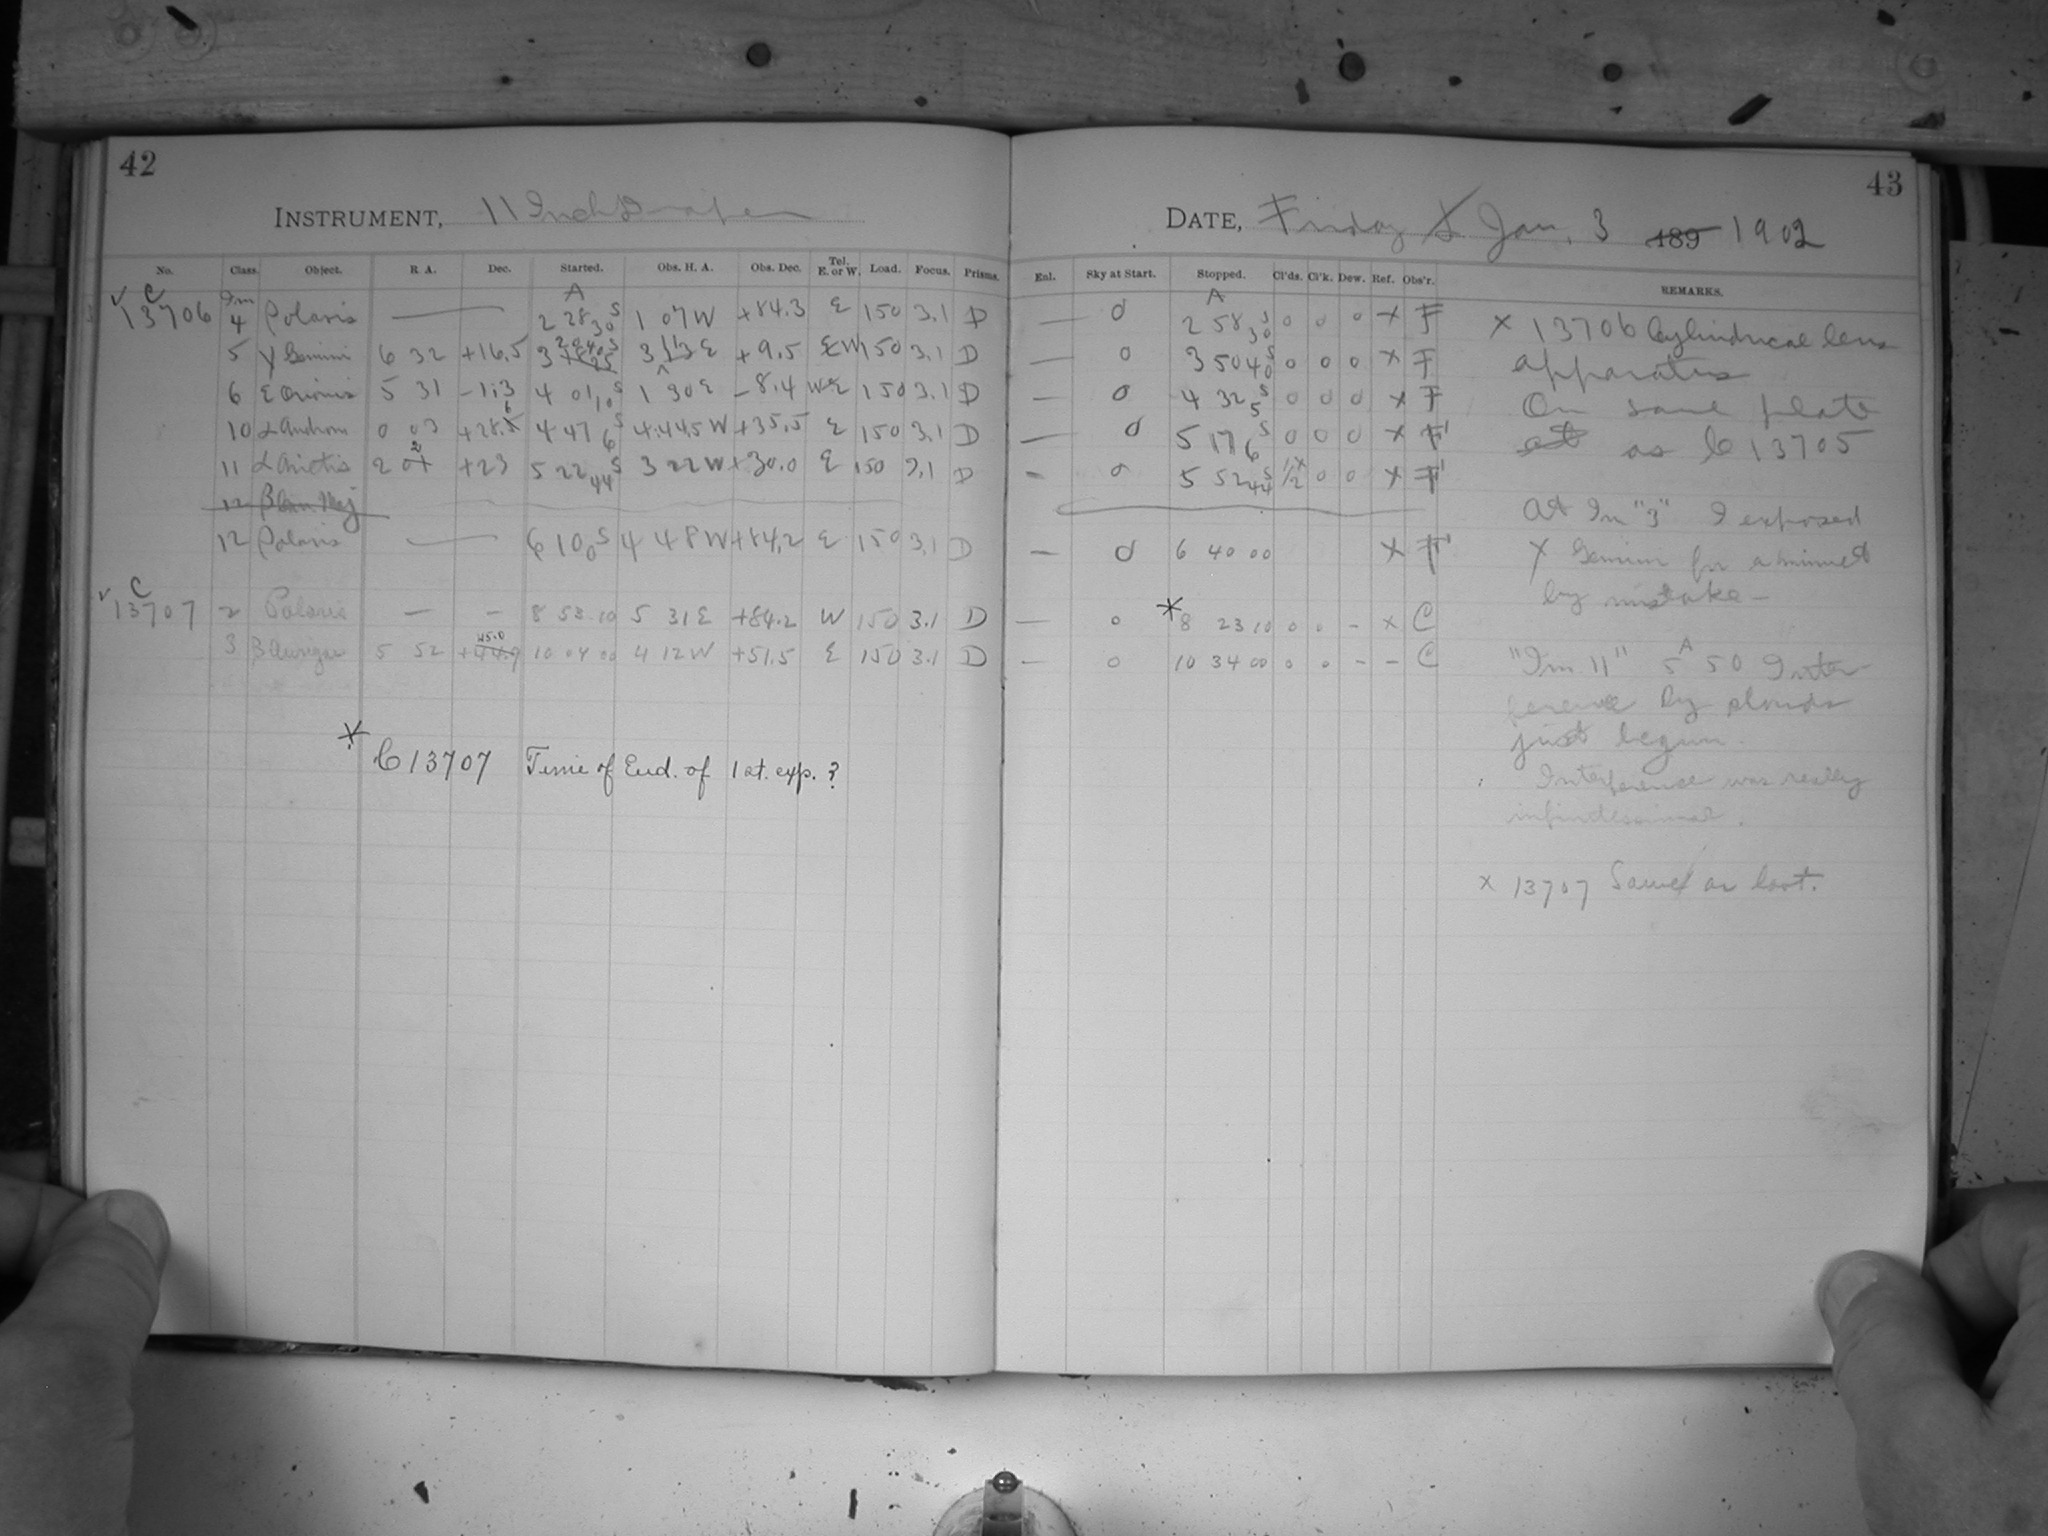 42
INSTRUMENT, 11 Inch Draper
No. Class. Object. R. A. Dec. Started. Obs. H. A. Obs. Dec. Tel. E. or W. Load. Focus. Prisms.
A
C 13706 Im 4 Polaris — 2 28 30 S 1 07 W +84.3 E 150 3.1 D
5 γ Gemini 6 32 +16.5 3 20 40 S 3 13 E +9.5 W 150 3.1 D
6 ε Orionis 5 31 -1.3 4 01 10 S 1 30 E -8.4 E 150 3.1 D
10 α Androm 0 03 +28.6 4 47 6 S 4.44.5 W +35.5 E 150 3.1 D
11 α Arietis 2 2 +23 5 22 44 S 3 22 W +30.0 E 150 3.1 D
12 β Can Maj
12 Polaris — 6 10 0 S 4 48 W +84.2 E 150 3.1 D
C 13707 2 Polaris — — 8 53 10 5 31 E +84.2 W 150 3.1 D
3 β Aurigae 5 52 +44.9 45.0 10 04 00 4 12 W +51.5 E 150 3.1 D
* C 13707 Time of End. of 1st. exp. ?
43
DATE, Friday Jan. 3 189 1902
Enl. Sky at Start. Stopped. Cl'ds. Cl'k. Dew. Ref. Obs'r. REMARKS.
A
— 0 2 58 30 S 0 0 0 x F
0 3 50 40 S 0 0 0 x F
— 0 4 32 5 S 0 0 0 x F
— 0 5 17 6 S 0 0 0 x F
- 0 5 52 44 S 1/2 x 0 0 x F
— 0 6 40 00 x F
— 0 * 8 23 10 0 0 - x C
— 0 10 34 00 0 0 - - C
x 13706 Cylindrical lens
apparatus
On same plate
at as C 13705
At Im "3" I exposed
γ Gemini for a minute
by mistake —
"Im 11" 5 A 50 Inter
ference by clouds
just begun.
Interference was really
infinitesimal.
x 13707 Same as last.